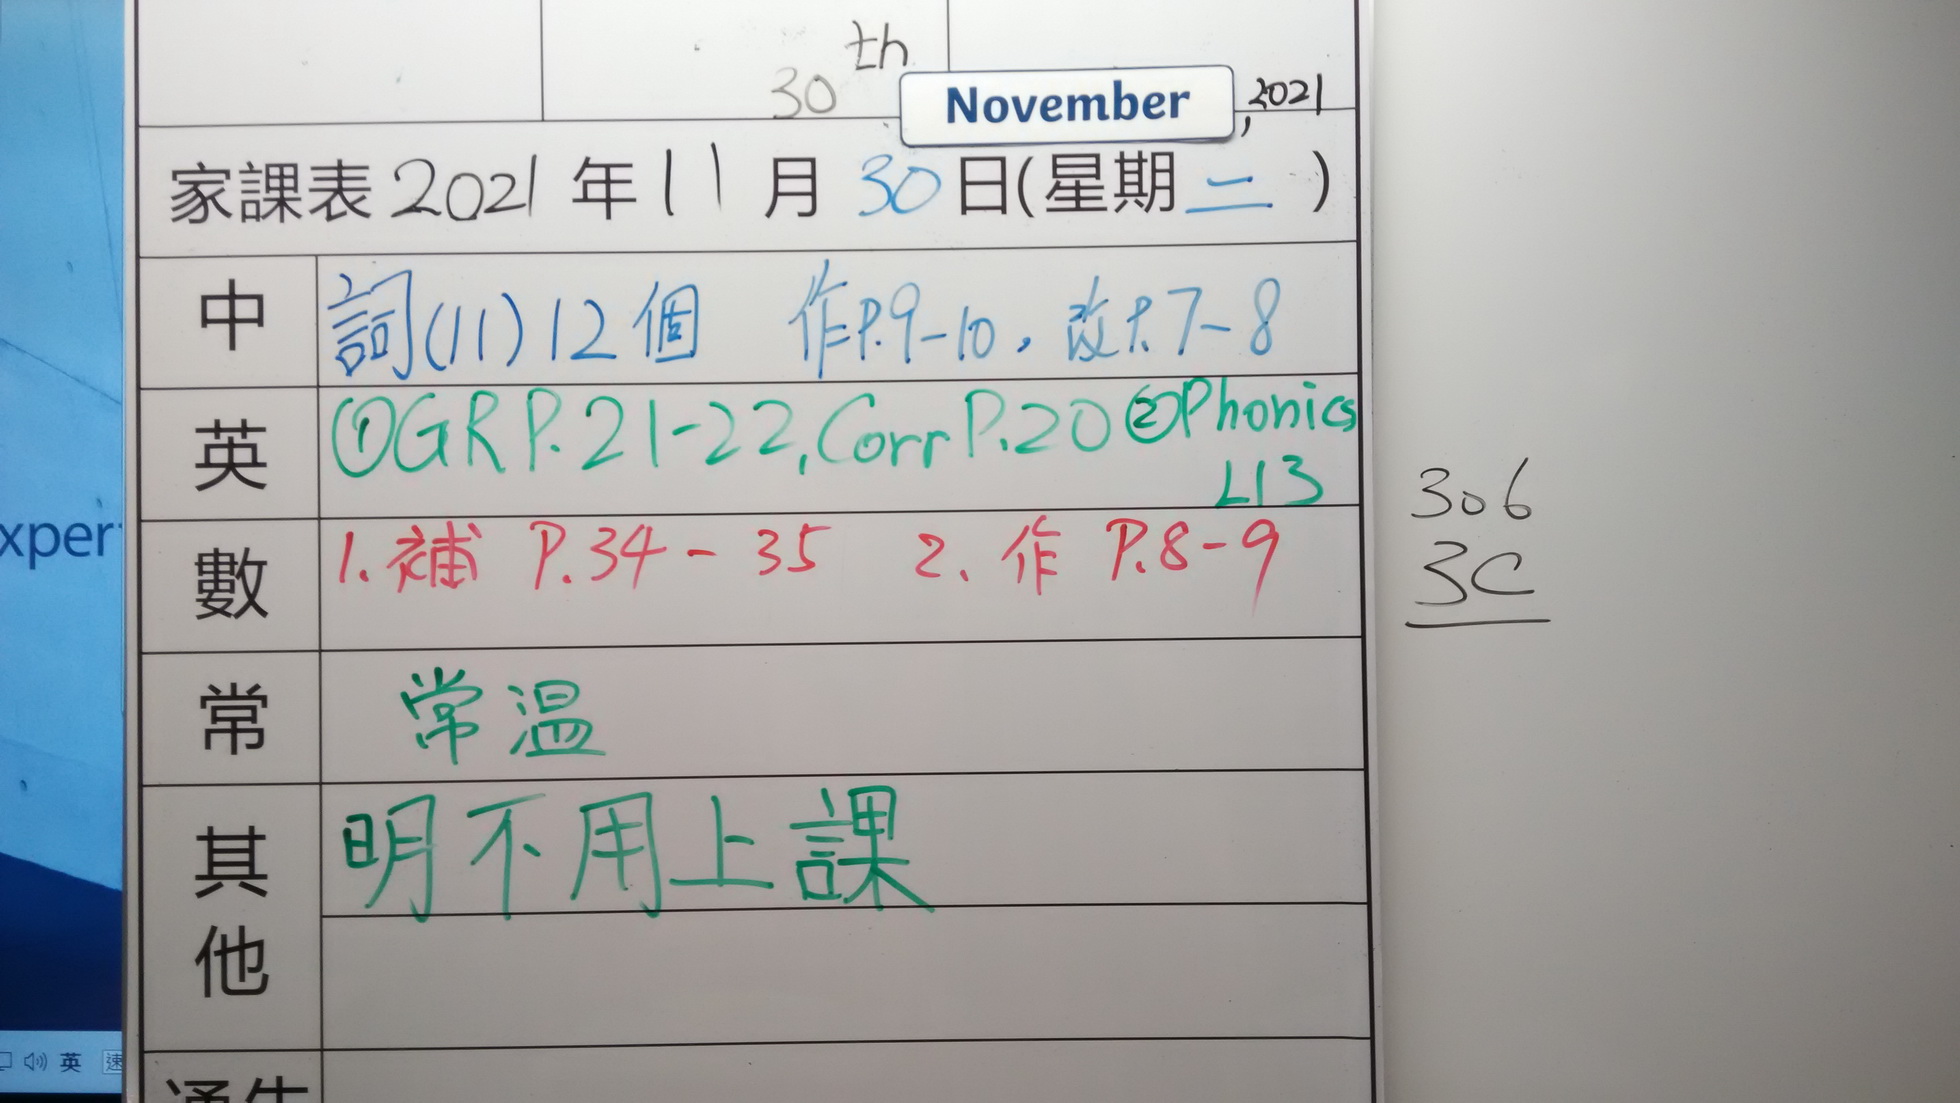 30th November, 2021
家課表 2021 年 11 月 30 日(星期二)
中 詞(11)12個 作P.9-10,改P.7-8
英 ①GR P.21-22, Corr P.20 ②Phonics
L13
數 1. 補 P.34-35 2. 作 P.8-9
常 常溫
其他 明不用上課
306
3C
xper
英 速